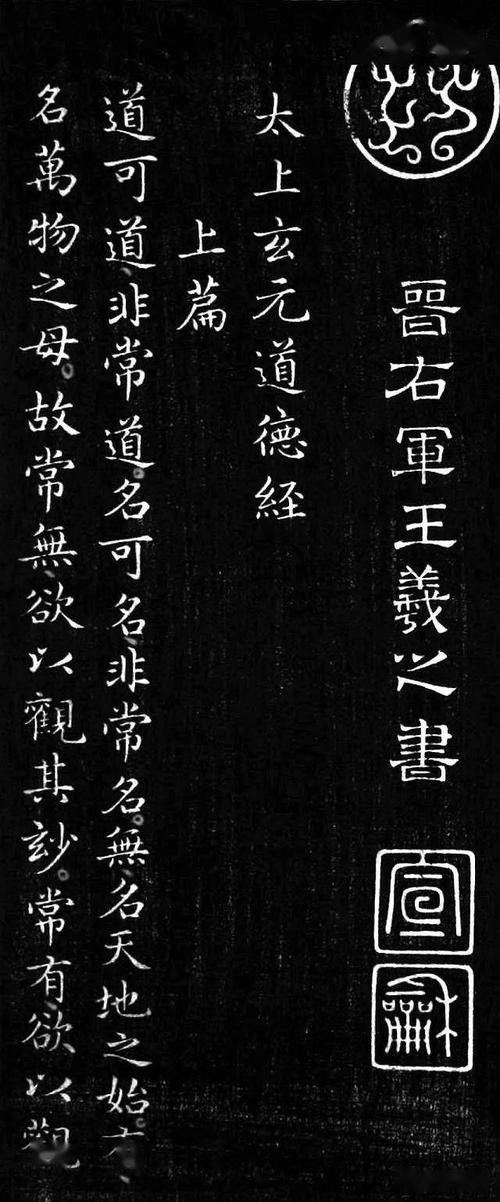 晉右軍王羲之書
宣
龢
太上玄元道德經
上篇
道可道非常道。名可名非常名。無名天地之始。有
名萬物之母。故常無欲以觀其玅。常有欲以觀